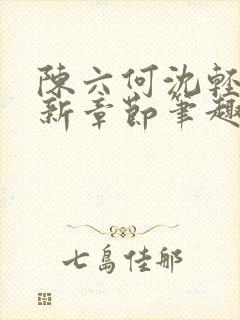 陳六何沈輕
新章節筆趣
七島佳那